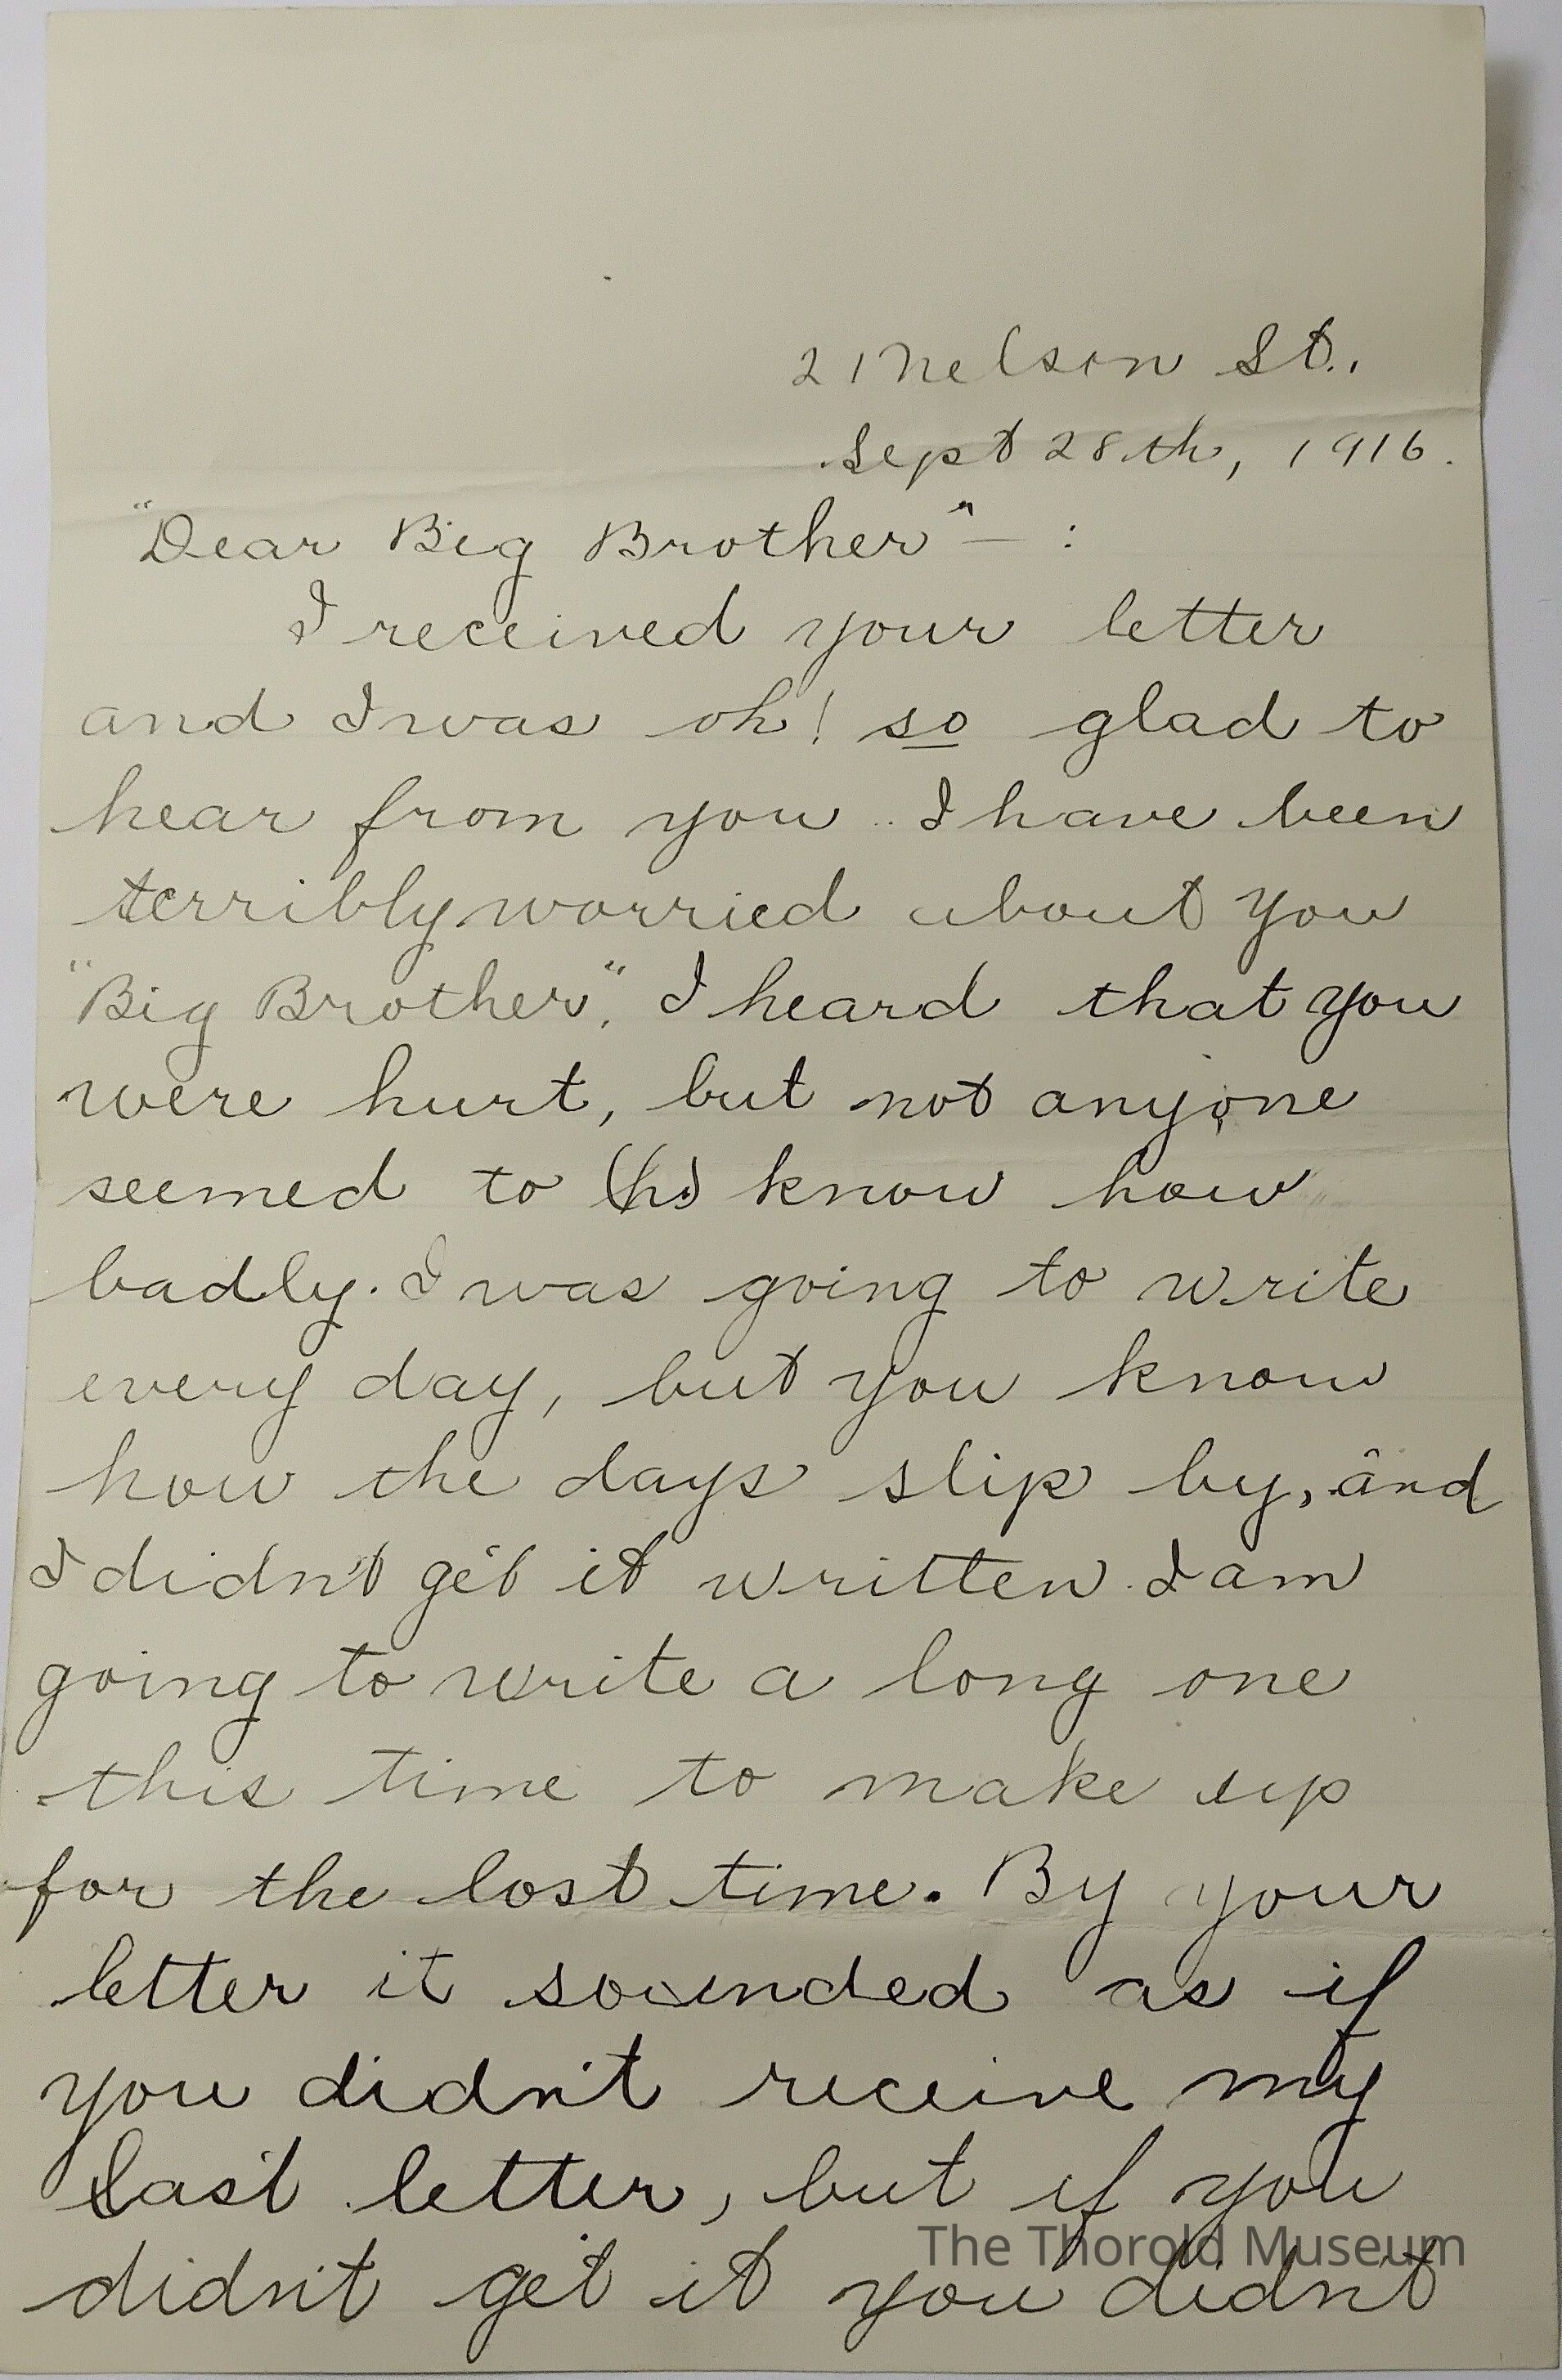 21 Nelson St.,
Sept 28th, 1916.
"Dear Big Brother" — :
I received your letter
and I was oh! so glad to
hear from you.. I have been
terribly worried about you
"Big Brother". I heard that you
were hurt, but not anyone
seemed to (h) know how
badly. I was going to write
every day, but you know
how the days slip by, and
I didn't get it written. I am
going to write a long one
this time to make up
for the lost time. By your
letter it sounded as if
you didn't receive my
last letter, but if you
The Thorold Museum
didn't get it you didn't